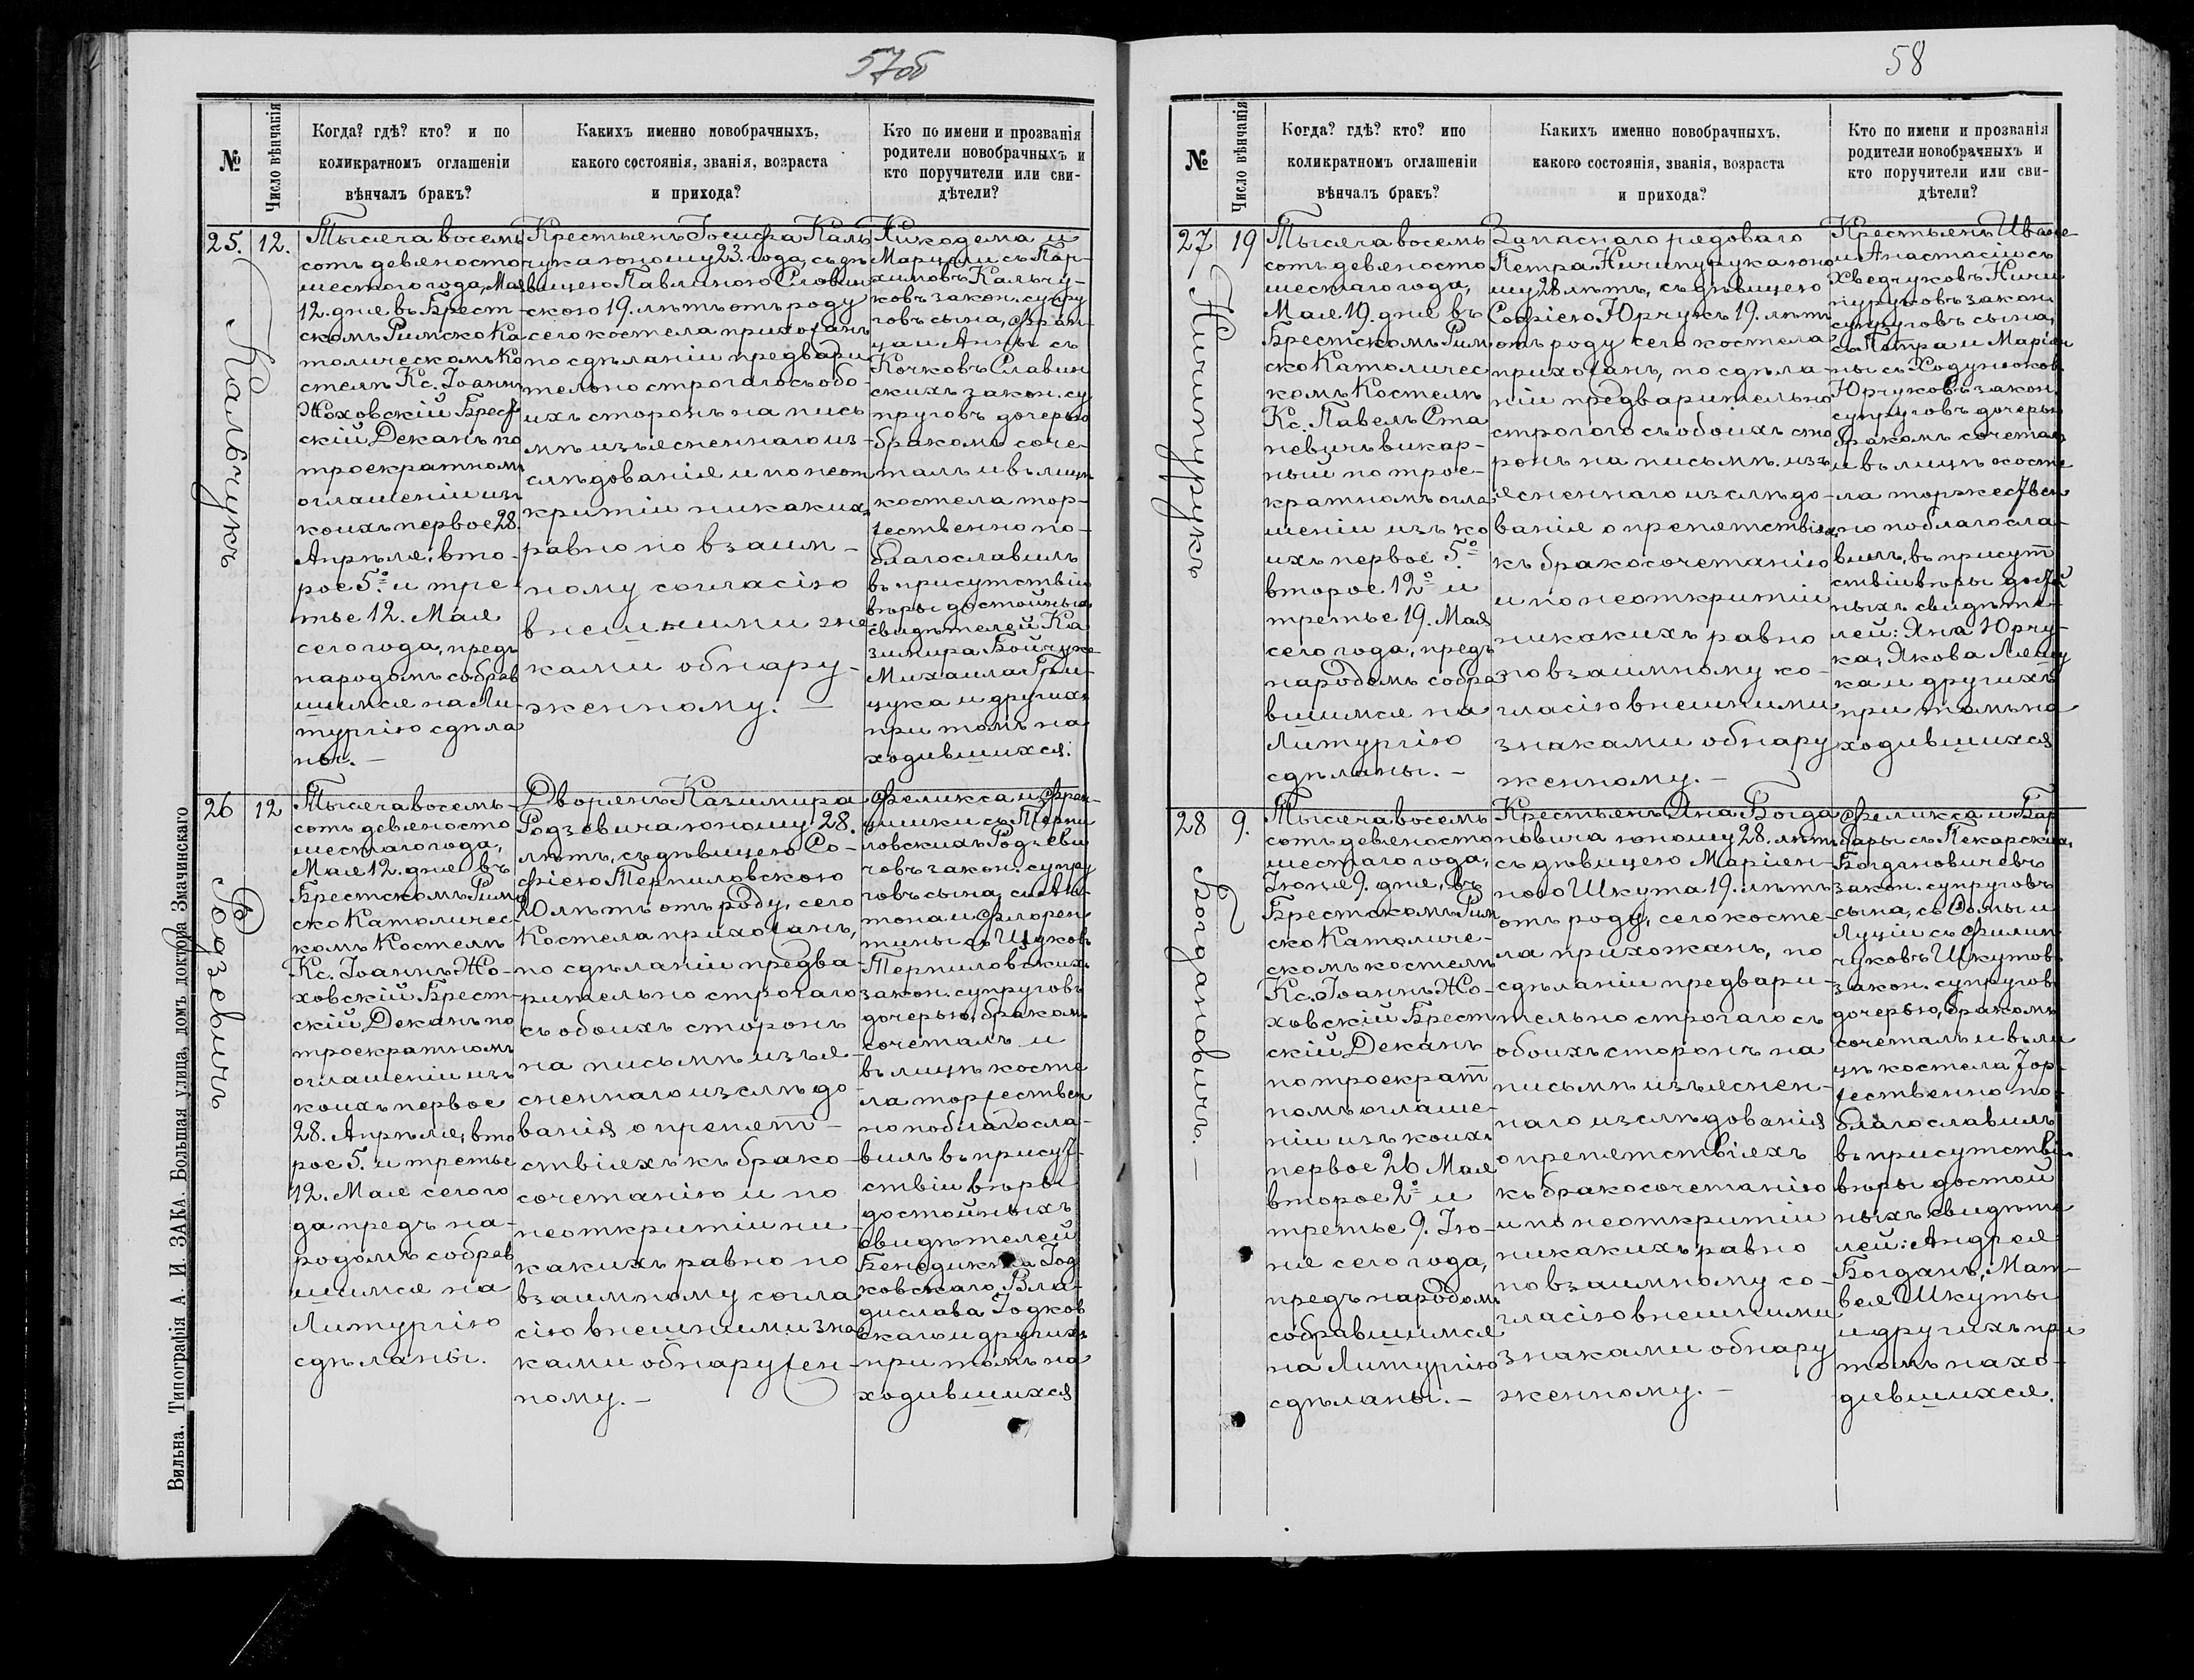 57об
№
Число вѣнчанія
Когда? гдѣ? кто? и по
коликратномъ оглашеніи
вѣнчалъ бракъ?
Какихъ именно новобрачныхъ,
какого состоянія, званія, возраста
и прихода?
Кто по имени и прозванія
родители новобрачныхъ и
кто поручители или сви-
дѣтели?
25.
12.
Кальчукъ
Тысяча восемь
сотъ девяносто
шестого года, Мая
12. дня въ Брест-
скомъ Римско Ка
толическомъ Ко
стелѣ Кс. Іоаннъ
Жоховскій Брест
скій Деканъ по
троекратномъ
оглашеніи изъ
коихъ первое 28.
Апрѣля, вто-
рое 5º и тре-
тье 12. Мая
сего года, предъ
народомъ собрав
шимся на Ли-
тургію сдѣла
ны.—
Крестьянъ Іосифа Каль
чука юношу 23. года, съ дѣ
вицею Павлиною Славин
скою 19. лѣтъ отъ роду
сего костела прихожанъ
по сдѣланіи предвари
тельно строгаго съ обо-
ихъ сторонъ на пись
мѣ изъясненнаго из-
слѣдованія и по неот
крытіи никакихъ
равно по взаим-
ному согласію
внешними зна
ками обнару-
женному.—
Никодема и
Марцели съ Пар-
химовъ Кальчу-
ковъ закон. супру
говъ сына, Фран-
ца и Анны съ
Кочковъ Славин
скихъ закон. су
пруговъ дочерью
бракомъ соче-
талъ и въ лицѣ
костела тор-
жественно по-
благославилъ
въ присутствіи
вѣры достойныхъ
свидѣтелей Ка
зимира Бойчука
Михаила Гри-
цука и другихъ
при томъ на
ходившихся.
26
12
Родзевичъ
Тысяча восемь-
сотъ девяносто
шестаго года,
Мая 12. дня въ
Брестскомъ Рим
ско Католичес-
комъ Костелѣ
Кс. Іоаннъ Жо-
ховскій Брест-
скій Деканъ по
троекратномъ
оглашеніи изъ
коихъ первое
28. Апрѣля, вто
рое 5. и третье
12. Мая сего го
да предъ на-
родомъ собрав
шимся на
Литургію
сдѣланы.
Дворянъ Казимира
Родзевича юношу 28.
лѣтъ, съ дѣвицею Со-
фіею Терпиловскою
20 лѣтъ отъ роду, сего
Костела прихожанъ,
по сдѣланіи предва-
рительно строгаго
съ обоихъ сторонъ
на письмѣ изъя-
сненнаго изслѣдо
ванія о препят-
ствіяхъ къ брако-
сочетанію и по
неоткрытіи ни-
какихъ равно по
взаимному согла
сію внешними зна
ками обнаружен-
ному.—
Феликса и Фран-
цишки съ Терпи
ловскихъ Родзеви
човъ закон. супру
говъ сына, съ Ан-
тона и Флорен
тины съ
Терпиловскихъ
закон. супруговъ
дочерью, бракомъ
сочеталъ и
въ лицѣ косте
ла торжествен
но поблагосла-
вилъ въ присут-
ствіи вѣры
достойныхъ
свидѣтелей
Бенедикта Год
ковскаго, Вла-
дислава Годков
скаго и другихъ
при томъ на
ходившихся
Вильна. Типографія А. И. ЗАКА. Большая улица, домъ доктора Змачинскаго
58
№
Число вѣнчанія
Когда? гдѣ? кто? ипо
коликратномъ оглашеніи
вѣнчалъ бракъ?
Какихъ именно новобрачныхъ,
какого состоянія, званія, возраста
и прихода?
Кто по имени и прозванія
родители новобрачныхъ и
кто поручители или сви-
дѣтели?
27
19
Ничипурукъ
Тысяча восемь
сотъ девяносто
шестаго года,
Мая 19. дня въ
Брестскомъ Рим
ско Католичес
комъ Костелѣ
Кс. Павелъ Ста
невичъ викар-
ный по трое-
кратномъ огла
шеніи изъ ко
ихъ первое 5º
второе 12º и
третье 19. Мая
сего года, предъ
народомъ собра
вшимся на
Литургію
сдѣланы.—
Запаснаго рядоваго
Петра Ничипурука юно
шу 28 лѣтъ, съ дѣвицею
Софіею Юрчукъ 19. лѣтъ
отъ роду сего костела
прихожанъ, по сдѣла-
ніи предварительно
строгого съ обоихъ сто
ронъ на письмѣ изъ
ясненнаго изслѣдо-
ванія о препятствіяхъ
къ бракосочетанію
и по неоткрытіи
никакихъ равно
по взаимному со-
гласію внешними
знаками обнару
женному.—
Крестьянъ Ивана
и Анастасіи съ
Хведчуковъ Ничи
пуруковъ закон.
супруговъ сына,
съ Петра и Маріан
ны съ Ходунюковъ
Юрчуковъ закон.
супруговъ дочерью
бракомъ сочеталъ
и въ лицѣ косте
ла торжествен
но поблагосла-
вилъ, въ присут
ствіи вѣры достой
ныхъ свидѣте-
лей: Яна Юрчу-
ка, Якова
ка и другихъ
при томъ на
ходившихся
28
9.
Богдановичъ.—
Тысяча восемь
сотъ девяносто
шестаго года,
Іюня 9. дня, въ
Брестскомъ Рим
ско Католиче-
скомъ костелѣ
Кс. Іоаннъ Жо-
ховскій Брест
скій Деканъ
по троекрат
номъ оглаше-
ніи изъ коихъ
первое 26 Мая
второе 2º и
третье 9. Ію-
ня сего года,
предъ народомъ
собравшимся
на Литургію
сдѣланы.—
Крестьянъ Яна Богда
новича юношу 28. лѣтъ
съ дѣвицею Маріан-
ною Шкута 19. лѣтъ
отъ роду, сего косте-
ла прихожанъ, по
сдѣланіи предвари-
тельно строгаго съ
обоихъ сторонъ на
письмѣ изъяснен-
наго изслѣдованія
о препятствіяхъ
къ бракосочетанію
и по неоткрытіи
никакихъ равно
по взаимному со-
гласію внешними
знаками обнару
женному.—
Феликса и Бар
бары съ Пекарскихъ
Богдановичевъ
закон. супруговъ
сына, съ Фомы и
Луціи съ Филип
чуковъ Шкутовъ
закон. супруговъ
дочерью, бракомъ
сочеталъ и въ ли
цѣ костела тор-
жественно по-
благославилъ
въ присутствіи
вѣры достой
ныхъ свидѣте
лей: Андрея
Богданъ, Мат-
вея Шкуты
и другихъ при
томъ нахо-
дившихся.